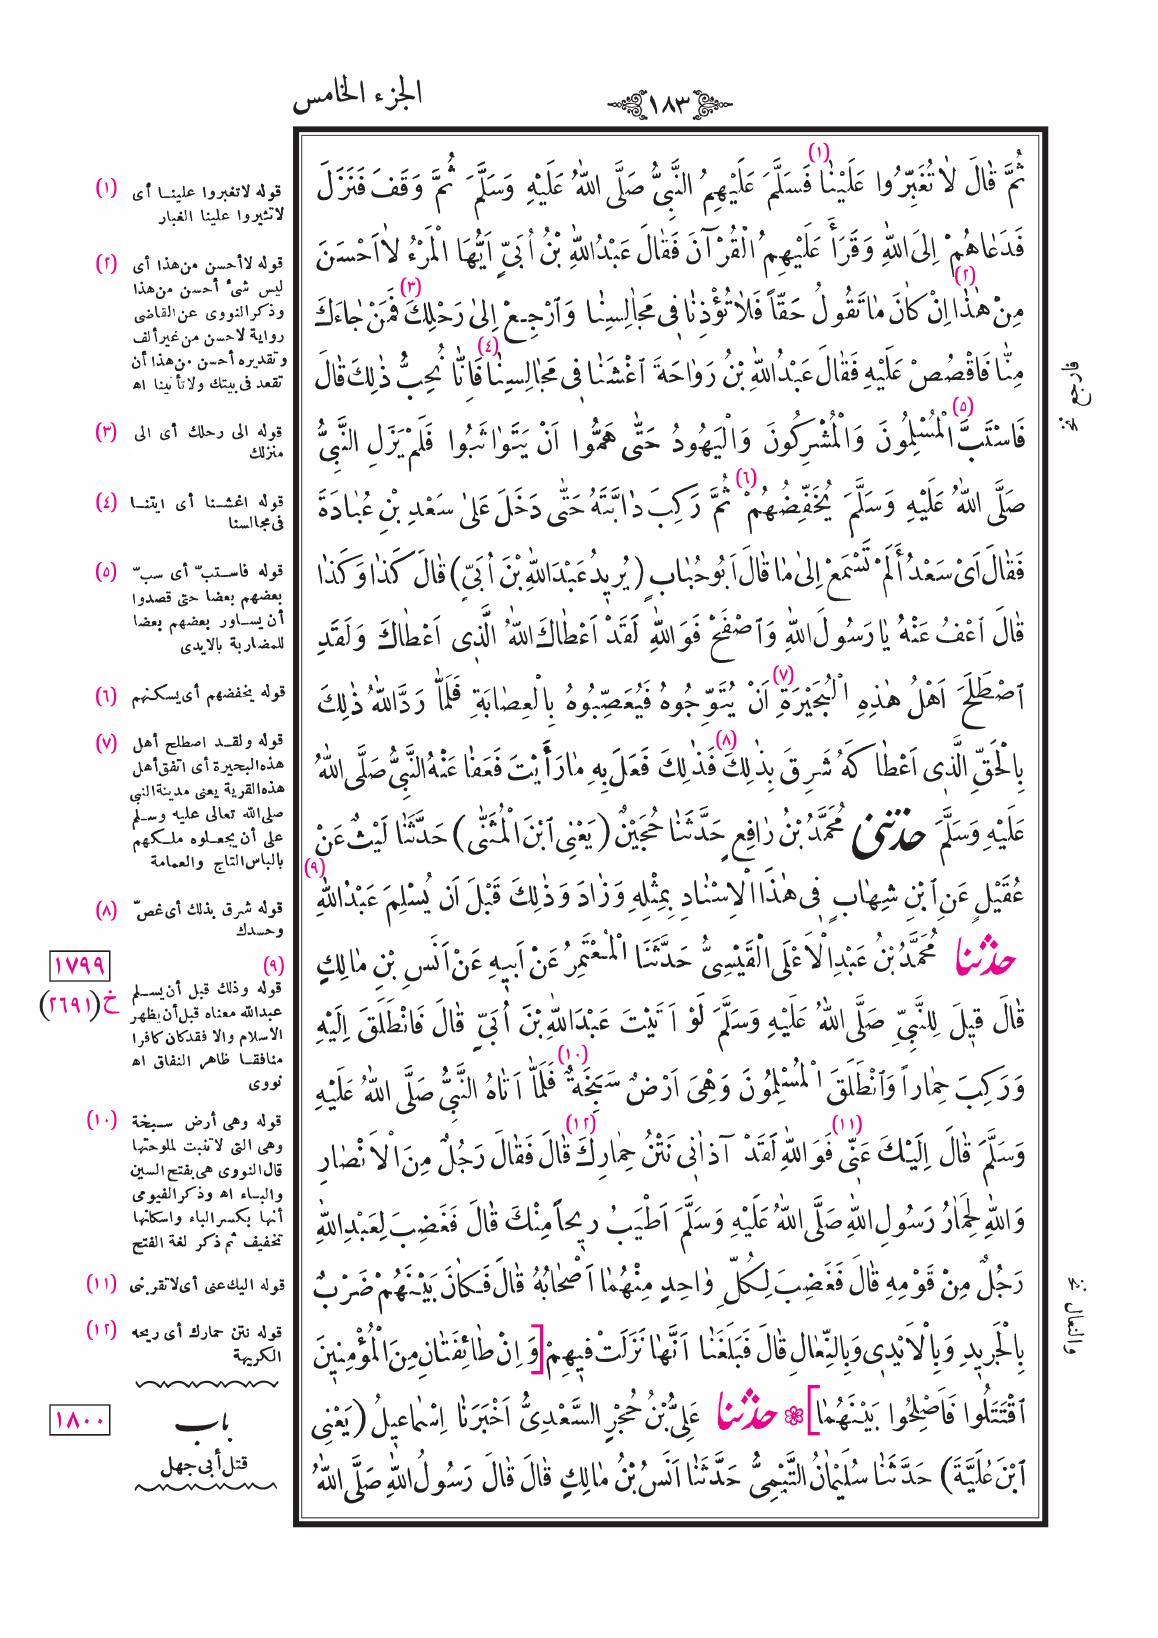 ١٨٣
الجزء الخامس
ثُمَّ قَالَ لَا تُغَبِّرُوا عَلَيْنَا (١) فَسَلَّمَ عَلَيْهِمُ النَّبِيُّ صَلَّى اللهُ عَلَيْهِ وَسَلَّمَ ثُمَّ وَقَفَ فَنَزَلَ
فَدَعَاهُمْ اِلَى اللهِ وَقَرَأَ عَلَيْهِمُ الْقُرْآنَ فَقَالَ عَبْدُاللهِ بْنُ اُبَيٍّ اَيُّهَا الْمَرْءُ لَا اَحْسَنَ
مِنْ هٰذَا (٢) اِنْ كَانَ مَا تَقُولُ حَقّاً فَلَا تُؤْذِنَا فِي مَجَالِسِنَا وَارْجِعْ اِلٰى رَحْلِكَ (٣) فَمَنْ جَاءَكَ
مِنَّا فَاقْصُصْ عَلَيْهِ فَقَالَ عَبْدُاللهِ بْنُ رَوَاحَةَ اغْشَنَا فِي مَجَالِسِنَا (٤) فَاِنَّا نُحِبُّ ذٰلِكَ قَالَ
فَاسْتَبَّ (٥) الْمُسْلِمُونَ وَالْمُشْرِكُونَ وَالْيَهُودُ حَتّٰى هَمُّوا اَنْ يَتَوَاثَبُوا فَلَمْ يَزَلِ النَّبِيُّ
صَلَّى اللهُ عَلَيْهِ وَسَلَّمَ يُخَفِّضُهُمْ (٦) ثُمَّ رَكِبَ دَابَّتَهُ حَتّٰى دَخَلَ عَلٰى سَعْدِ بْنِ عُبَادَةَ
فَقَالَ اَيْ سَعْدُ أَلَمْ تَسْمَعْ اِلٰى مَا قَالَ اَبُو حُبَابٍ (يُرِيدُ عَبْدَاللهِ بْنَ اُبَيٍّ) قَالَ كَذَا وَكَذَا
قَالَ اعْفُ عَنْهُ يَا رَسُولَ اللهِ وَاصْفَحْ فَوَاللهِ لَقَدْ اَعْطَاكَ اللهُ الَّذِي اَعْطَاكَ وَلَقَدِ
اصْطَلَحَ اَهْلُ هٰذِهِ الْبُحَيْرَةِ (٧) اَنْ يُتَوِّجُوهُ فَيُعَصِّبُوهُ بِالْعِصَابَةِ فَلَمَّا رَدَّ اللهُ ذٰلِكَ
بِالْحَقِّ الَّذِي اَعْطَاكَهُ شَرِقَ بِذٰلِكَ (٨) فَذٰلِكَ فَعَلَ بِهِ مَا رَأَيْتَ فَعَفَا عَنْهُ النَّبِيُّ صَلَّى اللهُ
عَلَيْهِ وَسَلَّمَ حَدَّثَنِي مُحَمَّدُ بْنُ رَافِعٍ حَدَّثَنَا حُجَيْنٌ (يَعْنِي ابْنَ الْمُثَنّٰى) حَدَّثَنَا لَيْثٌ عَنْ
عُقَيْلٍ عَنِ ابْنِ شِهَابٍ فِي هٰذَا الْاِسْنَادِ بِمِثْلِهِ وَزَادَ وَذٰلِكَ قَبْلَ اَن يُسْلِمَ عَبْدُاللهِ (٩)
حَدَّثَنَا مُحَمَّدُ بْنُ عَبْدِالْاَعْلَى الْقَيْسِيُّ حَدَّثَنَا الْمُعْتَمِرُ عَنْ اَبِيهِ عَنْ اَنَسِ بْنِ مَالِكٍ
قَالَ قِيلَ لِلنَّبِيِّ صَلَّى اللهُ عَلَيْهِ وَسَلَّمَ لَوْ اَتَيْتَ عَبْدَاللهِ بْنَ اُبَيٍّ قَالَ فَانْطَلَقَ اِلَيْهِ
وَرَكِبَ حِمَاراً وَانْطَلَقَ الْمُسْلِمُونَ وَهِيَ اَرْضٌ سَبِخَةٌ (١٠) فَلَمَّا اَتَاهُ النَّبِيُّ صَلَّى اللهُ عَلَيْهِ
وَسَلَّمَ قَالَ اِلَيْكَ عَنِّي (١١) فَوَاللهِ لَقَدْ آذَانِي نَتْنُ حِمَارِكَ (١٢) قَالَ فَقَالَ رَجُلٌ مِنَ الْاَنْصَارِ
وَاللهِ لَحِمَارُ رَسُولِ اللهِ صَلَّى اللهُ عَلَيْهِ وَسَلَّمَ اَطْيَبُ رِيحاً مِنْكَ قَالَ فَغَضِبَ لِعَبْدِاللهِ
رَجُلٌ مِنْ قَوْمِهِ قَالَ فَغَضِبَ لِكُلِّ وَاحِدٍ مِنْهُمَا اَصْحَابُهُ قَالَ فَكَانَ بَيْنَهُمْ ضَرْبٌ
بِالْجَرِيدِ وَبِالْاَيْدِي وَبِالنِّعَالِ قَالَ فَبَلَغَنَا اَنَّهَا نَزَلَتْ فِيهِمْ [وَاِنْ طَائِفَتَانِ مِنَ الْمُؤْمِنِينَ
اقْتَتَلُوا فَاَصْلِحُوا بَيْنَهُمَا] ❁ حَدَّثَنَا عَلِيُّ بْنُ حُجْرٍ السَّعْدِيُّ اَخْبَرَنَا اِسْمَاعِيلُ (يَعْنِي
ابْنَ عُلَيَّةَ) حَدَّثَنَا سُلَيْمَانُ التَّيْمِيُّ حَدَّثَنَا اَنَسُ بْنُ مَالِكٍ قَالَ قَالَ رَسُولُ اللهِ صَلَّى اللهُ
فارجع نخ
والنعال نخ
(١) قوله لاتغبروا علينا أى
لاتثيروا علينا الغبار
(٢) قوله لاأحسن من هذا أى
ليس شئ أحسن من هذا
وذكر النووى عن القاضى
رواية لاحسن من غير ألف
وتقديره أحسن من هذا أن
تقعد فى بيتك ولاتأتينا اه
(٣) قوله الى رحلك أى الى
منزلك
(٤) قوله اغشنا أى ايتنا
فى مجالسنا
(٥) قوله فاستبّ أى سبّ
بعضهم بعضا حتى قصدوا
أن يساور بعضهم بعضا
للمضاربة بالايدى
(٦) قوله يخفضهم أى يسكنهم
(٧) قوله ولقد اصطلح أهل
هذه البحيرة أى اتفق أهل
هذه القرية يعنى مدينة النبى
صلى الله تعالى عليه وسلم
على أن يجعلوه ملكهم
بالباس التاج والعمامة
(٨) قوله شرق بذلك أى غصّ
وحسدك
١٧٩٩
خ (٢٦٩١)
(٩)
قوله وذلك قبل أن يسلم
عبدالله معناه قبل أن يظهر
الاسلام والا فقد كان كافرا
منافقا ظاهر النفاق اه
نووى
(١٠) قوله وهى أرض سبخة
وهى التى لاتنبت لملوحتها
قال النووى هى بفتح السين
والباء اه وذكر الفيومى
أنها بكسر الباء واسكانها
تخفيف ثم ذكر لغة الفتح
(١١) قوله اليك عنى أى لاتقربنى
(١٢) قوله نتن حمارك أى ريحه
الكريهة
١٨٠٠
باب
قتل أبى جهل